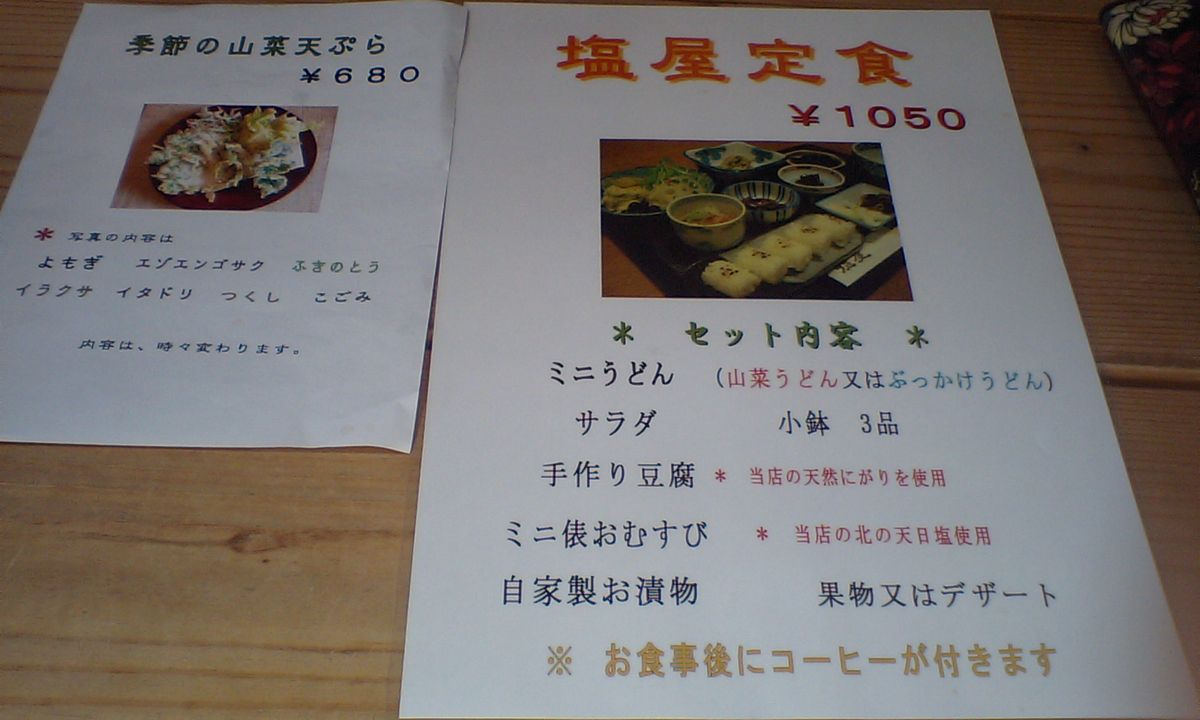 季節の山菜天ぷら
¥680
* 写真の内容は
よもぎ エゾエンゴサク ふきのとう
イラクサ イタドリ つくし こごみ
内容は、時々変わります。
塩屋定食
¥1050
* セット内容 *
ミニうどん (山菜うどん又はぶっかけうどん)
サラダ 小鉢 3品
手作り豆腐 * 当店の天然にがりを使用
ミニ俵おむすび * 当店の北の天日塩使用
自家製お漬物 果物又はデザート
※ お食事後にコーヒーが付きます